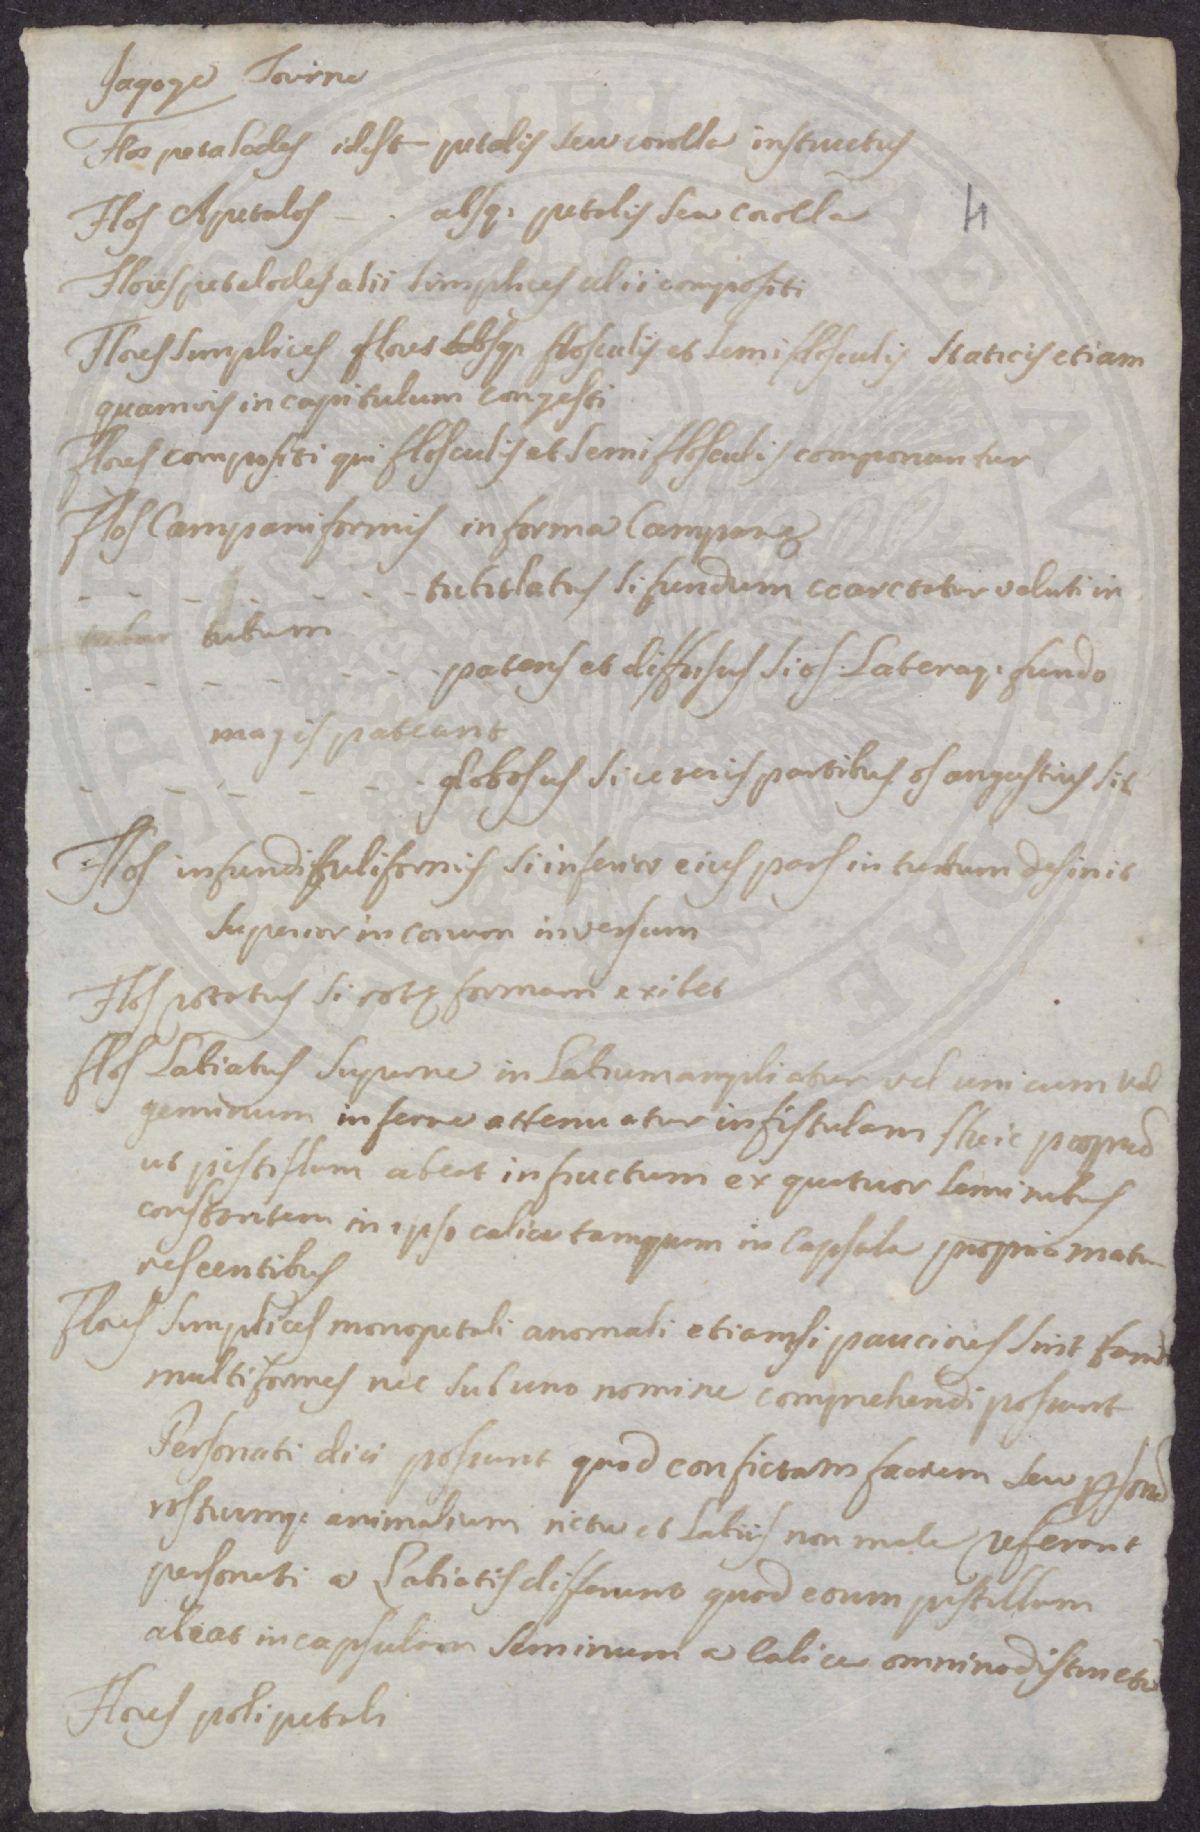 Isagoge Tourne
Flos petalodes idest petalis seu corolla instructus
4
Flos Apetalos - . absq. petalis seu corolla
Flores petalodes alii simplices alii compositi
Flores simplices flores absq. flosculis et semiflosculis staticis etiam
quamvis in capitulum congesti
flores compositi qui flosculis et semiflosculis componuntur
Flos Campaniformis in forma Campanę
- - - - - - - tubulatus si fundum coarctetur veluti in
tubum
- - - - - - - patens et diffusus si os Lateraq. fundo
magis pateant
- - - - - - globosus si ceteris partibus os angustius sit
Flos infundibuliformis si inferior eius pars in tubum desinit
superior in conum inversum
Flos rotatus si rotę formam exibet
flos Labiatus superne in Labium ampliatur vel unicum vel
geminum inferne attenuatur in fistulam
ut pistillum abeat in fructum ex quatuor seminibus
constantem in ipso calice tamquam in Capsula propria matu
rescentibus
Flores simplices monopetali anomali etiamsi pauciores sint
multiformes nec sub uno nomine comprehendi possunt
Personati dici possunt quod confictam faciem seu
rostrumq. animalium rictu et Labiis non male referant
personati a Labiatis differunt quod eorum pistillum
abeat in capsulam seminum a Calice omnino distinct
Flores polipetali